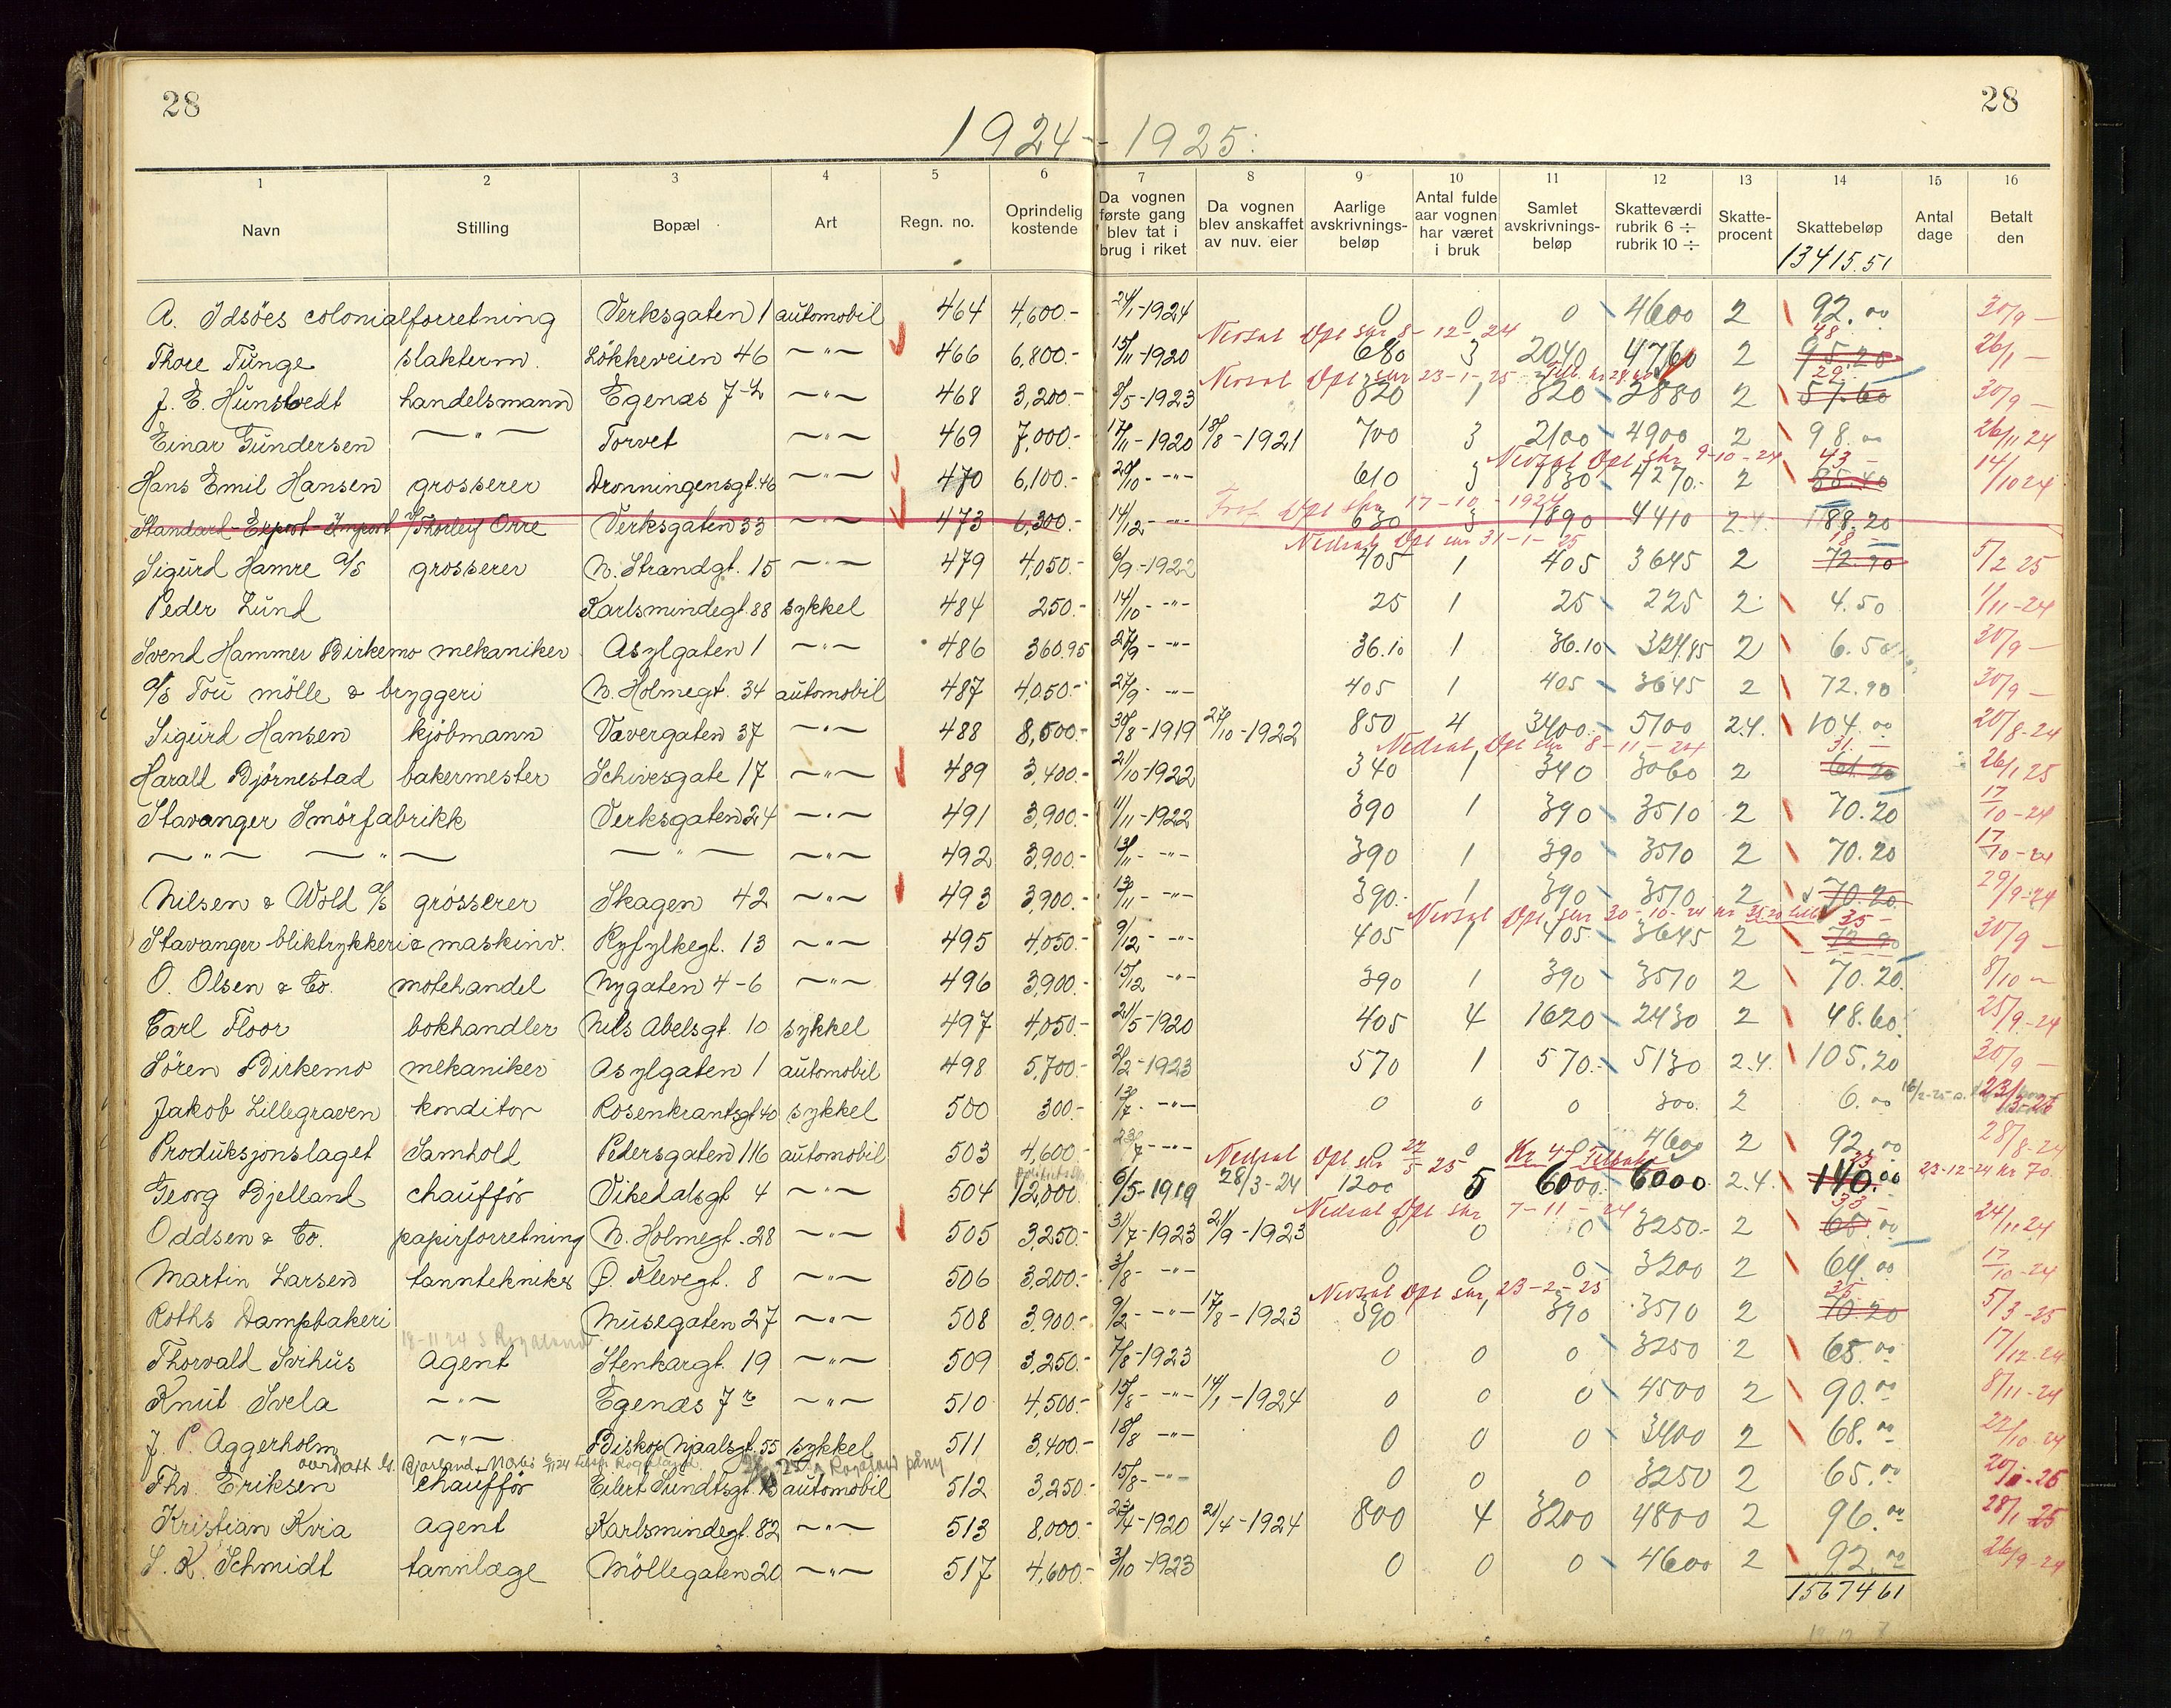 28
28
1924 - 1925.
1 2 3 4 5 6 7 8 9 10 11 12 13 14 15 16
Navn Stilling Bopæl Art Regn. no. Oprindelig kostende Da vognen første gang blev tat i brug i riket Da vognen blev anskaffet av nuv. eier Aarlige avskrivnings-beløp Antal fulde aar vognen har været i bruk Samlet avskrivnings-beløp Skatteværdi rubrik 6 ÷ rubrik 10 ÷ Skatte-procent Skattebeløp Antal dage Betalt den
13415.51
A. Idsöes colonialforretning Verksgaten 1 automobil 464 4,600.- 24/1-1924 0 0 0 4600 2 92.00 30/9 -
Nedsat Opl skr 8-12-24 48
Thore Tunge slakterm. Lökkeveien 46 -"- 466 6,800.- 15/11-1920 680 3 2040 4760 2 95.20 26/1 -
Nedsat Opl skr 23-1-25 29.
J. E. Hunstvedt handelsmann Egenæs 7-L -"- 468 3,200.- 8/5-1923 320 1 320 2880 2 57.60 30/9 -
Einar Gundersen -"- Torvet -"- 469 7,000.- 17/11-1920 18/8-1921 700 3 2100 4900 2 98.00 26/11 24
Nedsat Opl skr 9-10-24 43 -
Hans Emil Hansen grosserer Dronningensgt. 46 -"- 470 6,100.- 20/10- -"- 610 3 1830 4270.- 2 85.40 14/10 24
Opl skr 17-10-1924
Standard-Export-Import v/Thorleif Orre Verksgaten 33 -"- 473 6,300.- 14/12- -"- 630 3 1890 4410 2.4. 88.20
Nedsat Opl skr 31-1-25 18 -
Sigurd Hamre A/S grosserer N. Strandgt. 15 -"- 479 4,050.- 6/9-1922 405 1 405 3645 2 72.90 5/2 25
Peder Lund Karlsmindegt. 88 sykkel 484 250.- 14/10- -"- 25 1 25 225 2 4.50 1/11-24
Svend Hammer Birkemo mekaniker Asylgaten 1 -"- 486 360.95 27/9- -"- 36.10 1 36.10 324.85 2 6.50 30/9 -
A/S Tou mölle & bryggeri N. Holmegt. 34 automobil 487 4,050.- 27/9- -"- 405 1 405 3645 2 72.90 30/9 -
Sigurd Hansen kjöbmann Vævergaten 37 -"- 488 8,500.- 30/8-1919 27/10-1922 850 4 3400 5100 2.4. 104.00 20/8-24
Nedsat Opl skr 8-11-24 31. -
Harald Bjørnestad bakermester Schivesgate 17 -"- 489 3,400.- 21/10-1922 340 1 340 3060 2 61.20 26/1 25
Stavanger Smörfabrikk Verksgaten 24 -"- 491 3,900.- 11/11-1922 390 1 390 3510 2 70.20 17/10-24
-"- -"- -"- -"- 492 3,900.- 13/11- -"- 390 1 390 3510 2 70.20 17/10-24
Nilsen & Wold A/S grosserer Skagen 42 -"- 493 3,900.- 13/11- -"- 390.- 1 390 3510 2 70.20 29/9-24
Nedsat Opl skr 30-10-24 kr 35.20 35 -
Stavanger bliktrykkeri & maskinv. Ryfylkegt. 13 -"- 495 4,050.- 9/12- -"- 405 1 405 3645 2 72.90 30/9 -
O. Olsen & Co. motehandel Nygaten 4-6 -"- 496 3,900.- 15/12 -"- 390 1 390 3510 2 70.20. 8/10 -
Carl Floor bokhandler Nils Abelsgt. 10 sykkel 497 4,050.- 21/5-1920 405 4 1620 2430 2 48.60 25/9-24
Sören Birkemo mekaniker Asylgaten 1 automobil 498 5,700.- 2/2-1923 570 1 570.- 5130 2.4. 105.20 30/9 -
Jakob Lillegraven konditor Rosenkrantsgt. 40 sykkel 500 300.- 13/7- -"- 0 0 0 300. 2 6.00
Produksjonslaget Samhold Pedersgaten 116 automobil 503 4,600.- 23/7- -"- 0 0 0 4600 2 92.00 28/8-24
Nedsat Opl skr 22/5-25 Kr 45 23
Georg Bjelland chaufför Vikedalsgt 4 -"- 504 12,000. 6/5-1919 28/3-24 1200 5 6000 6000 2.4. 140.00 23-12-24 kr 70.
Nedsat Opl skr 7-11-24 33 -
Oddsen & Co. papirforretning N. Holmegt. 28 -"- 505 3,250.- 31/7-1923 21/9-1923 0 0 0 3250.- 2 65.00 24/11 24
Martin Larsen tanntekniker Ø. Klevegt. 8 -"- 506 3,200.- 3/8- -"- 0 0 0 3200 2 64.00 17/10-24
Nedsat Opl skr 23-2-25 35
Roths Dampbakeri Musegaten 27 -"- 508 3,900.- 9/2- -"- 17/8-1923 390 1 390 3510 2 70.20 5/3-25
18-11 24 S Rogaland
Thorvald Svihus Agent Stenkargt. 19 -"- 509 3,250.- 7/8-1923 0 0 0 3250 2 65.00 17/12-24
Knut Svela -"- Egenæs 7 -"- 510 4,500.- 15/8- -"- 14/1-1924 0 0 0 4500 2 90.00 8/11-24
J. P. Aggerholm -"- Biskop Njaalsgt. 55 sykkel 511 3,400.- 18/8- -"- 0 0 0 3400 2 68.00 22/10-24
Bjorland Rogaland
Thv. Eriksen chaufför Eilert Sundtsgt. automobil 512 3,250.- 15/8- -"- 0 0 0 3250 2 65.00
Kristian Kvia agent Karlsmindegt. 82 -"- 513 8,000.- 23/4-1920 21/4-1924 800 4 3200 4800 2 96.00 28/1 25
S. K. Schmidt tannlæge Möllegaten 20 -"- 517 4,600.- 3/10-1923 0 0 0 4600 2 92.00 26/9-24
15674 61